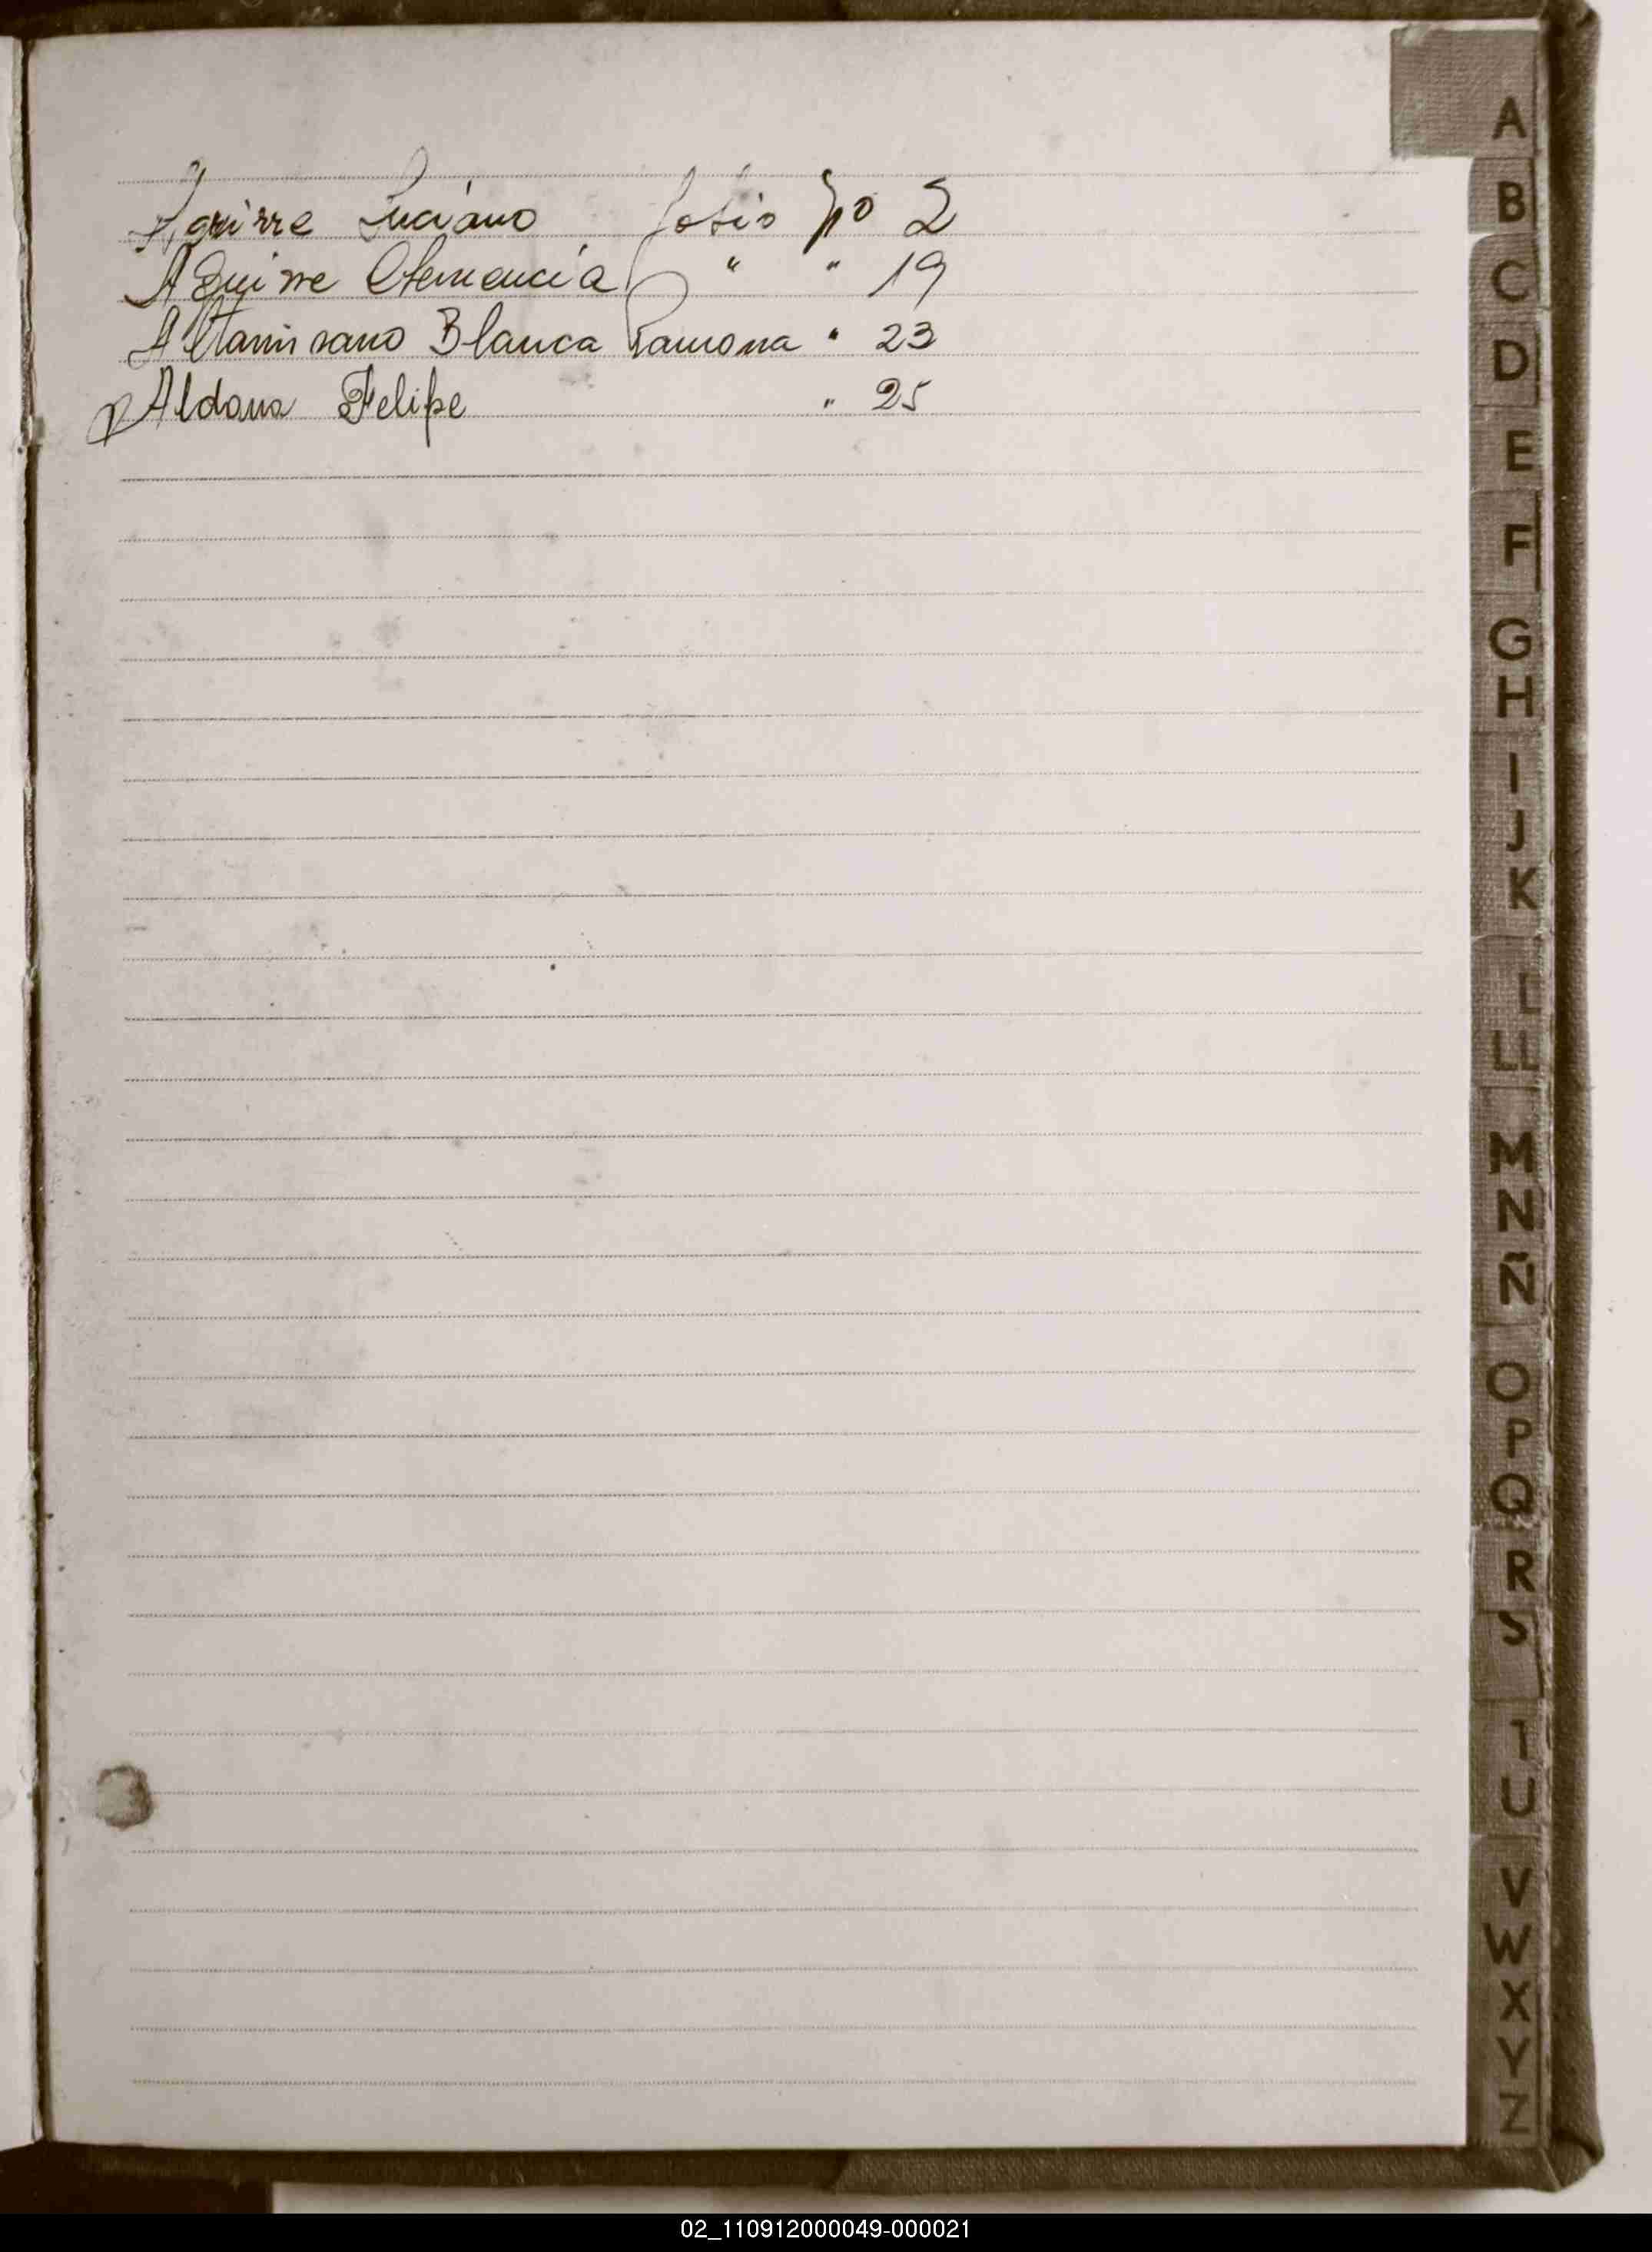 Aguirre Luciano Folio Nº 2
Aguirre Clemencia " " 19
Altamirano Blanca Ramona " 23
Aldana Felipe " 25
A
B
C
D
E
F
G
H
I
J
K
L
LL
M
N
Ñ
O
P
Q
R
S
T
U
V
W
X
Y
Z
02_110912000049-000021